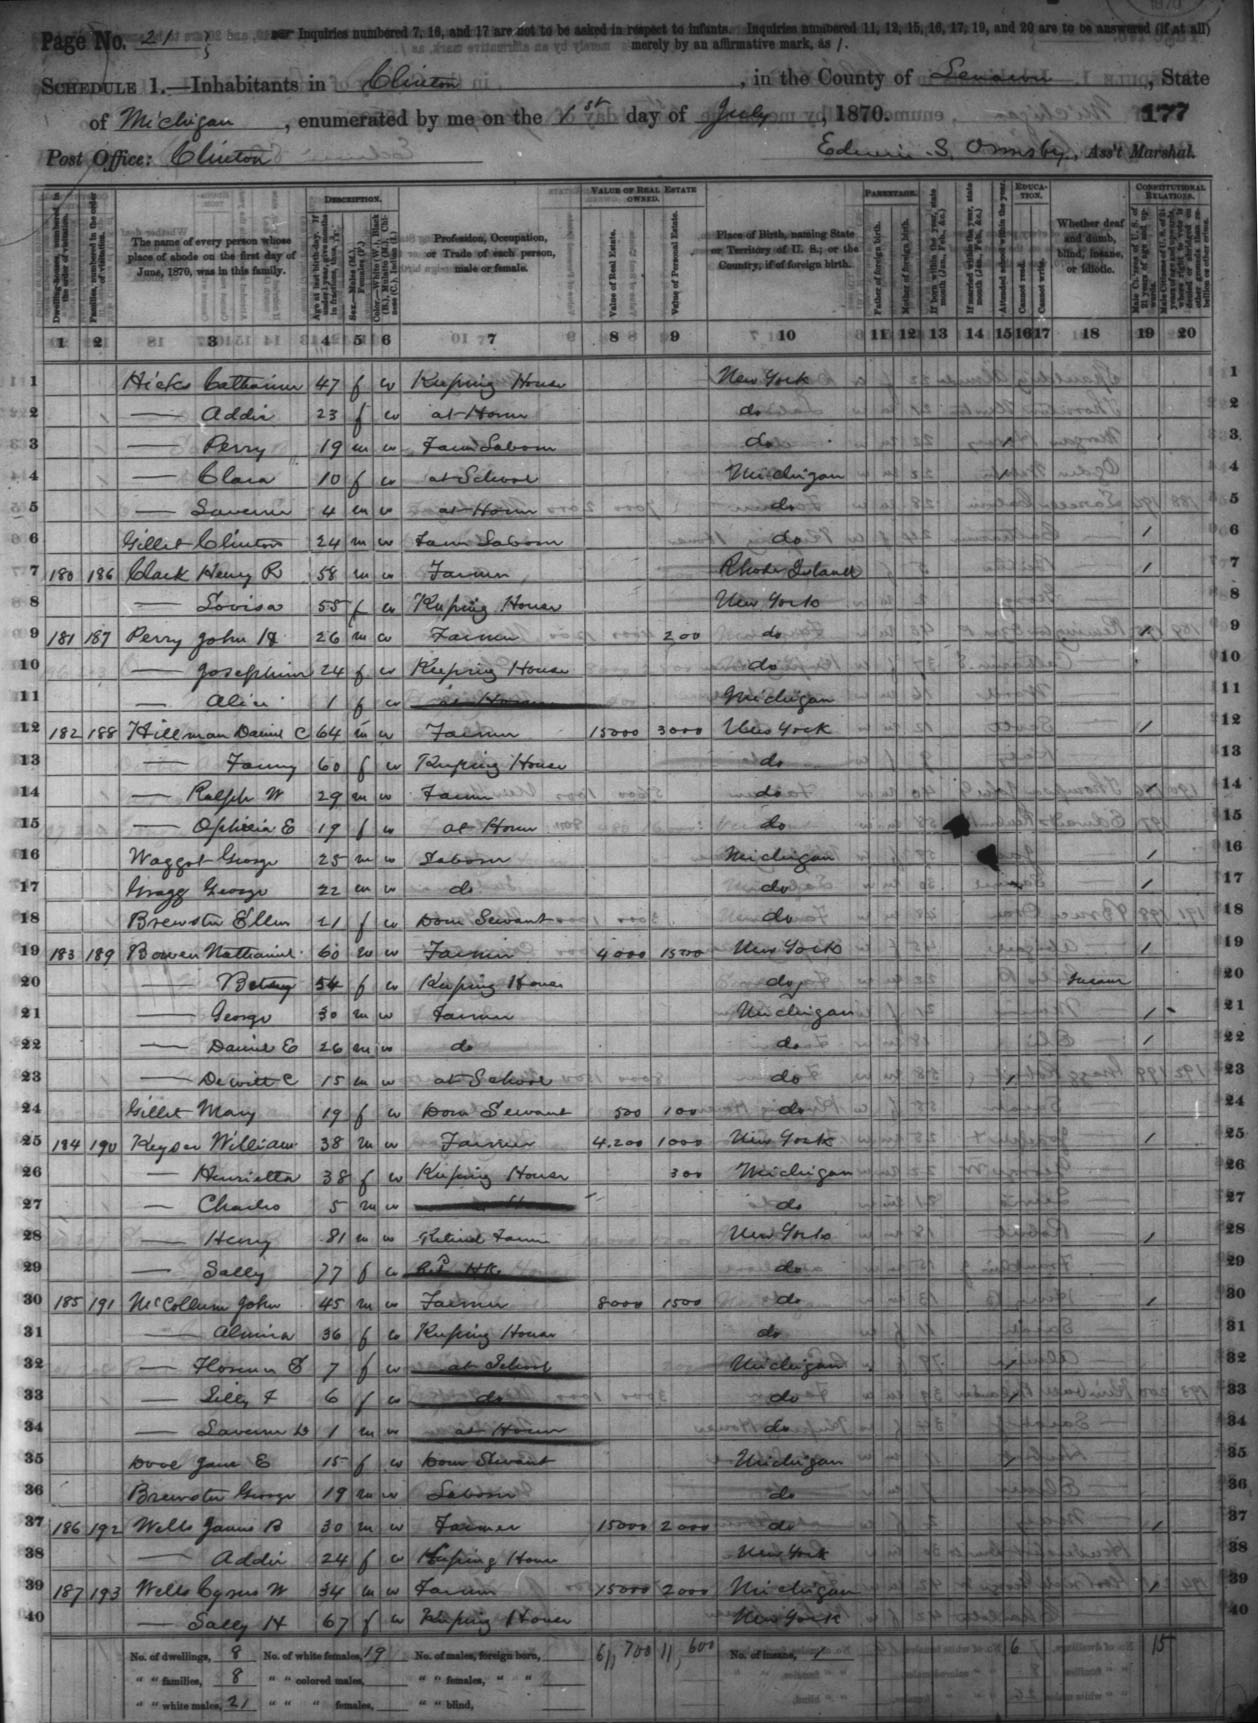 Page No. 21
Inquiries numbered 7, 16, and 17 are not to be asked in respect to infants. Inquiries numbered 11, 12, 15, 16, 17, 19, and 20 are to be answered (if at all)
merely by an affirmative mark, as /.
SCHEDULE 1.—Inhabitants in Clinton, in the County of Lenawee, State
of Michigan, enumerated by me on the 1st day of July, 1870. 177
Post Office: Clinton Edwin S. Ormsby, Ass't Marshal.
DESCRIPTION. VALUE OF REAL ESTATE OWNED. PARENTAGE. EDUCATION. CONSTITUTIONAL RELATIONS.
Dwelling-houses, numbered in the order of visitation. Families, numbered in the order of visitation. The name of every person whose place of abode on the first day of June, 1870, was in this family. Profession, Occupation, or Trade of each person, male or female. Value of Real Estate. Value of Personal Estate. Place of Birth, naming State or Territory of U. S.; or the Country, if of foreign birth. Father of foreign birth. Mother of foreign birth. Attended school within the year. Cannot read. Cannot write. Whether deaf and dumb, blind, insane, or idiotic.
1 2 3 4 5 6 7 8 9 10 11 12 13 14 15 16 17 18 19 20
1 Hicks Catharine 47 f w Keeping House New York 1
2 — Addie 23 f w at Home do 2
3 — Perry 19 m w Farm Laborer do / 3
4 — Clara 10 f w at School Michigan / 4
5 — Laverne 4 m w at Home do 5
6 Gillet Clinton 24 m w Farm Laborer do / 6
7 180 186 Clark Henry R 58 m w Farmer Rhode Island / 7
8 — Lovisa 55 f w Keeping House New York 8
9 181 187 Perry John H 26 m w Farmer 200 do / 9
10 — Josephine 24 f w Keeping House do 10
11 — Alice 1 f w at Home Michigan 11
12 182 188 Hillman Daniel C 64 m w Farmer 15000 3000 New York / 12
13 — Fanny 60 f w Keeping House do 13
14 — Ralph W 29 m w Farmer do / 14
15 — Ophelia E 19 f w at Home do 15
16 Waggot George 25 m w Laborer Michigan / 16
17 Gragg George 22 m w do do / 17
18 Brewster Ellen 21 f w Dom Servant do 18
19 183 189 Bowen Nathaniel 60 m w Farmer 4000 1500 New York / 19
20 — Betsey 54 f w Keeping House do Insane 20
21 — George 30 m w Farmer Michigan / 21
22 — Daniel E 26 m w do do / 22
23 — Dewitt C 15 m w at School do / 23
24 Gillet Mary 19 f w Dom Servant 500 100 do 24
25 184 190 Keyser William 38 m w Farmer 4.200 1000 New York / 25
26 — Henrietta 38 f w Keeping House 300 Michigan 26
27 — Charles 5 m w at Home do 27
28 — Henry 81 m w Retired Farmer New York / 28
29 — Sally 77 f w do 29
30 185 191 McCollum John 45 m w Farmer 8000 1500 do / 30
31 — Almira 36 f w Keeping House do 31
32 — Florence 7 f w at School Michigan / 32
33 — Lilly F 6 f w do do / 33
34 — Laverne D 1 m w at Home do 34
35 Jane E 15 f w Dom Servant Michigan / 35
36 Brewster George 19 m w Laborer do 36
37 186 192 Wells James B 30 m w Farmer 15000 2000 do / 37
38 — Addie 24 f w Keeping House New York 38
39 187 193 Wells Cyrus W 34 m w Farmer 15000 2000 Michigan / 39
40 — Sally H 67 f w Keeping House New York 40
No. of dwellings, 8 No. of white females, 19 No. of males, foreign born, 61,700 11,600 No. of insane, 1 6 15
" " families, 8 " " colored males, " " females, " "
" " white males, 21 " " " females, " " blind,